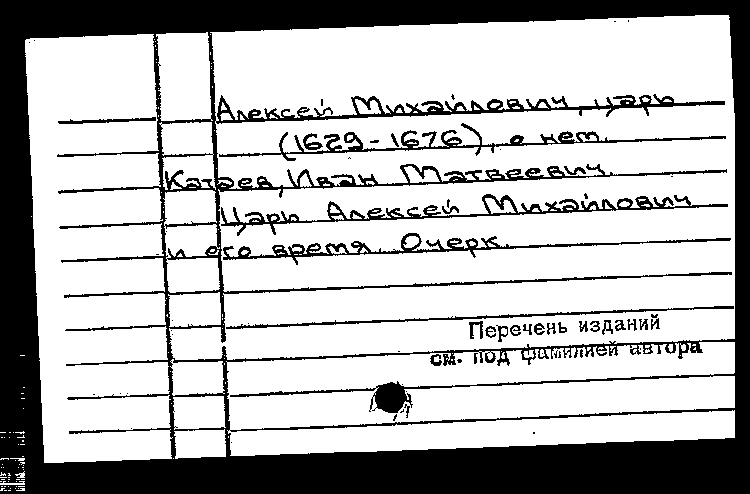 Алексей Михайлович, царь
(1629-1676), о нем.
Катаев, Иван Матвеевич.
Царь Алексей Михайлович
и его время. Очерк.
Перечень изданий
см. под фамилией автора